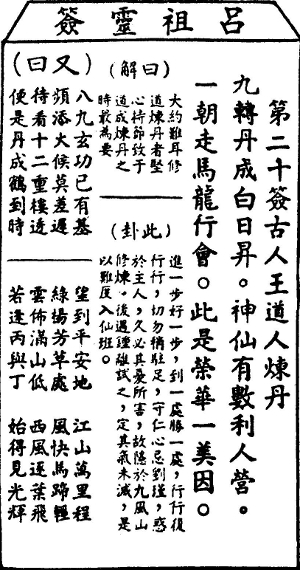 呂祖靈簽
第二十簽古人王道人煉丹
九轉丹成白日昇。神仙有數利人營。
一朝走馬龍行會。此是榮華一美因。
(解曰)
大約難耳修
道煉丹者堅
心持節致于
道成煉丹之
時最為要
(此卦)
進一步好一步,到一處勝一處,行行復
行行,切勿稍駐足,守仁心忌到瑾,惑
於主人,久必其憂所害,故隱於九風山
修煉。後遇鍾離試之,定其氣未滅,是
以難度入仙班。
(又曰)
八九玄功已有基
頻添火候莫差遲
待看十二重樓透
便是丹成鶴到時
望到平安地 江山萬里程
綠楊芳草處 風快馬蹄輕
雲佈滿山低 西風逐葉飛
若逢丙與丁 始得見光輝